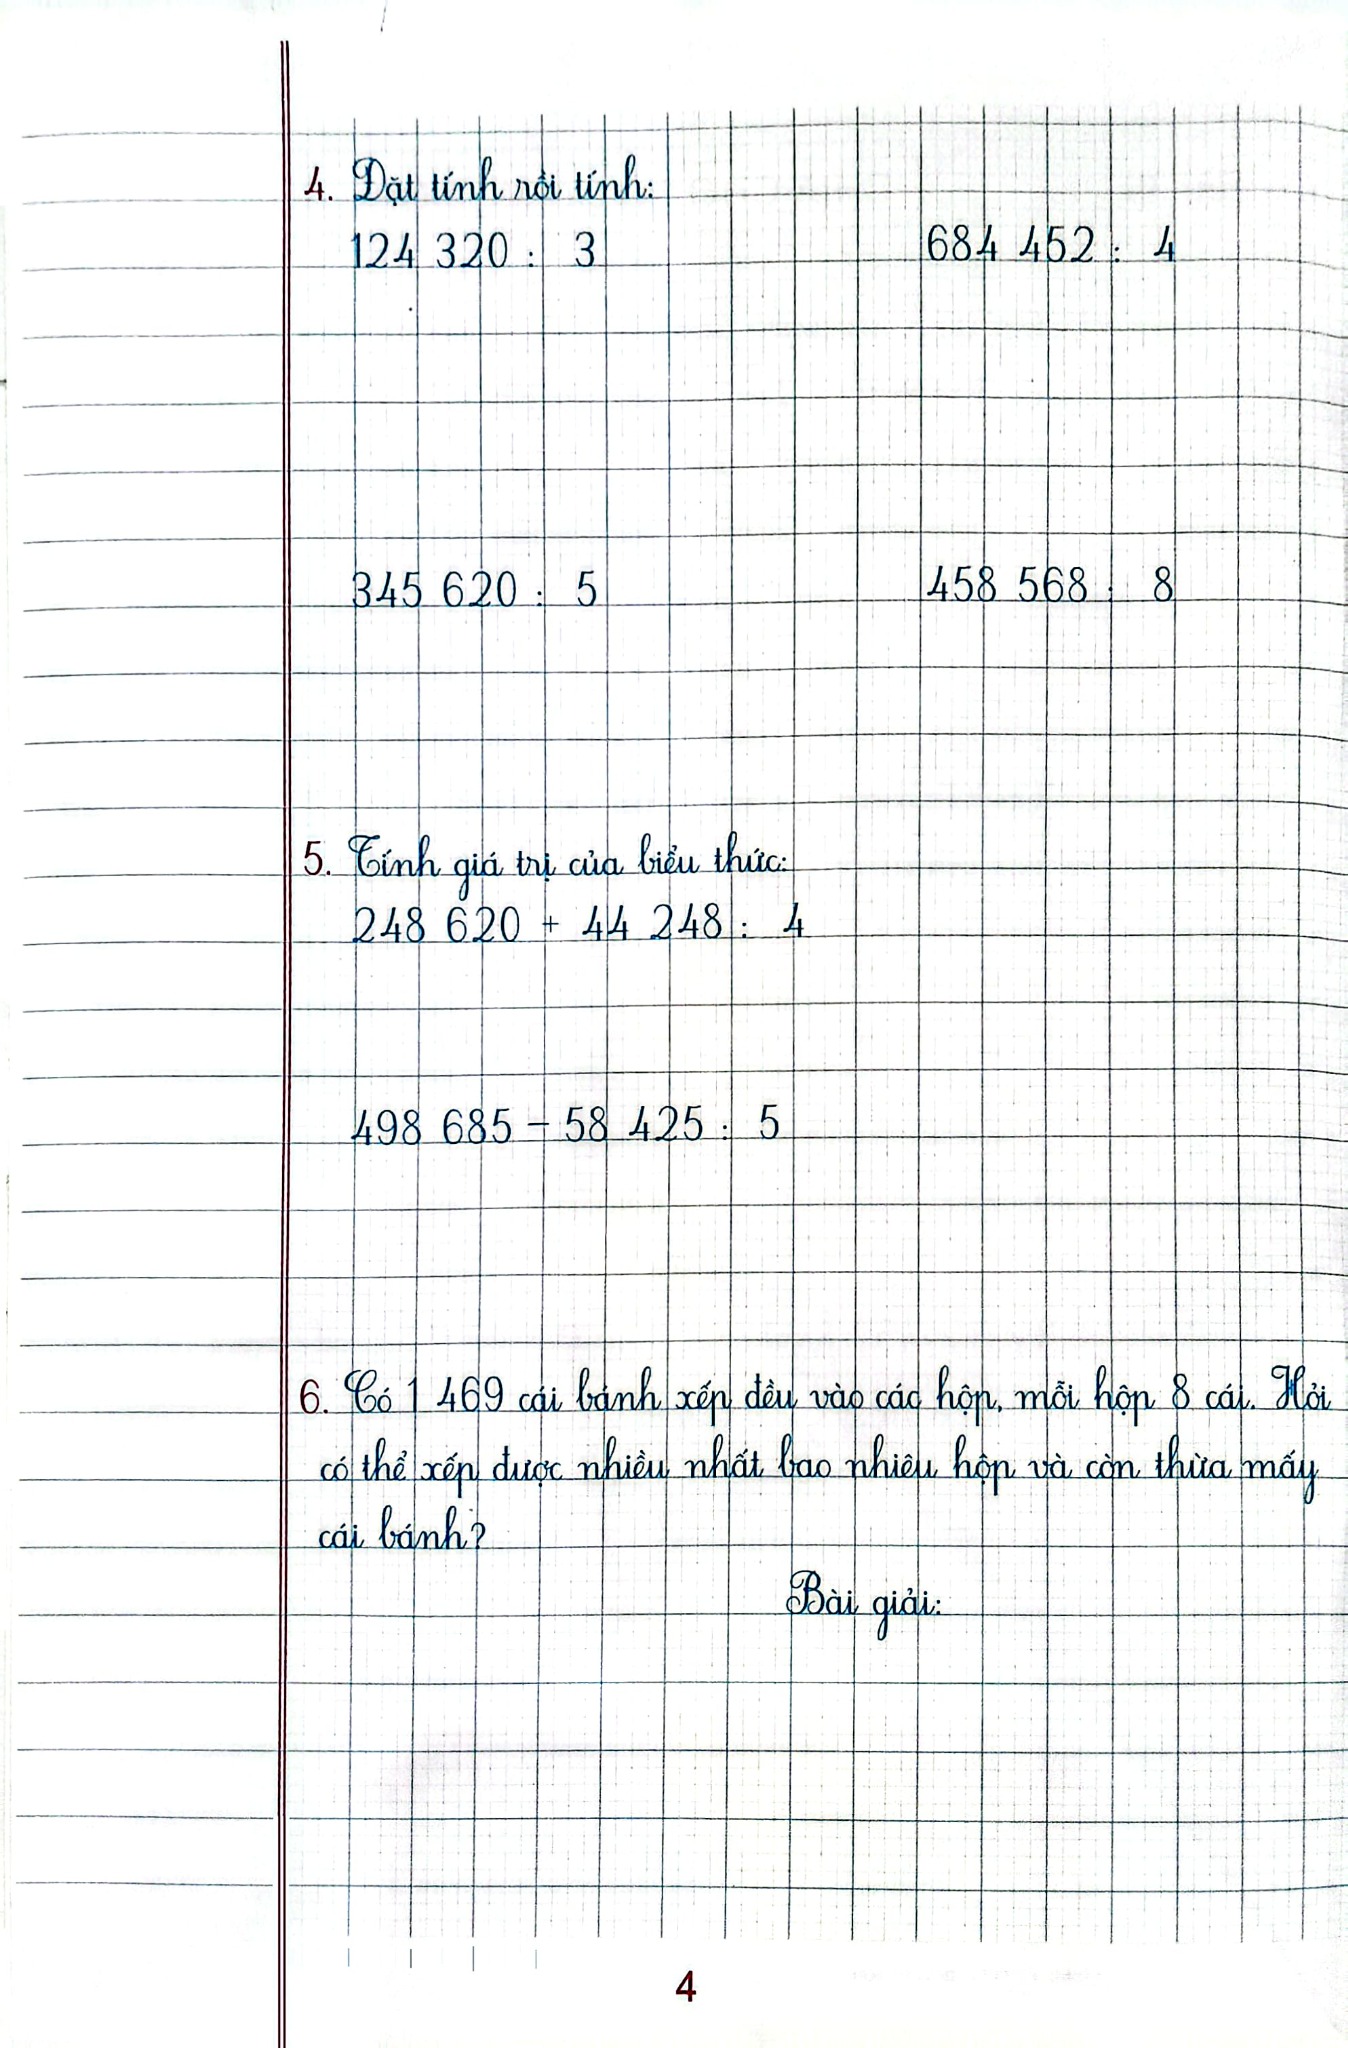 4. Đặt tính rồi tính:
124 320 : 3
684 452 : 4
345 620 : 5
458 568 : 8
5. Tính giá trị của biểu thức:
248 620 + 44 248 : 4
498 685 – 58 425 : 5
6. Có 1 469 cái bánh xếp đều vào các hộp, mỗi hộp 8 cái. Hỏi
có thể xếp được nhiều nhất bao nhiêu hộp và còn thừa mấy
cái bánh?
Bài giải:
4